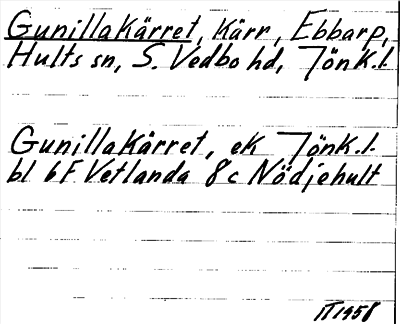 Gunillakärret, kärr, Ebbarp,
Hults sn, S. Vedbo hd, Jönk.l.
Gunillakärret, ek Jönk.l.
bl 6F Vetlanda 8c Nödjehult
1958